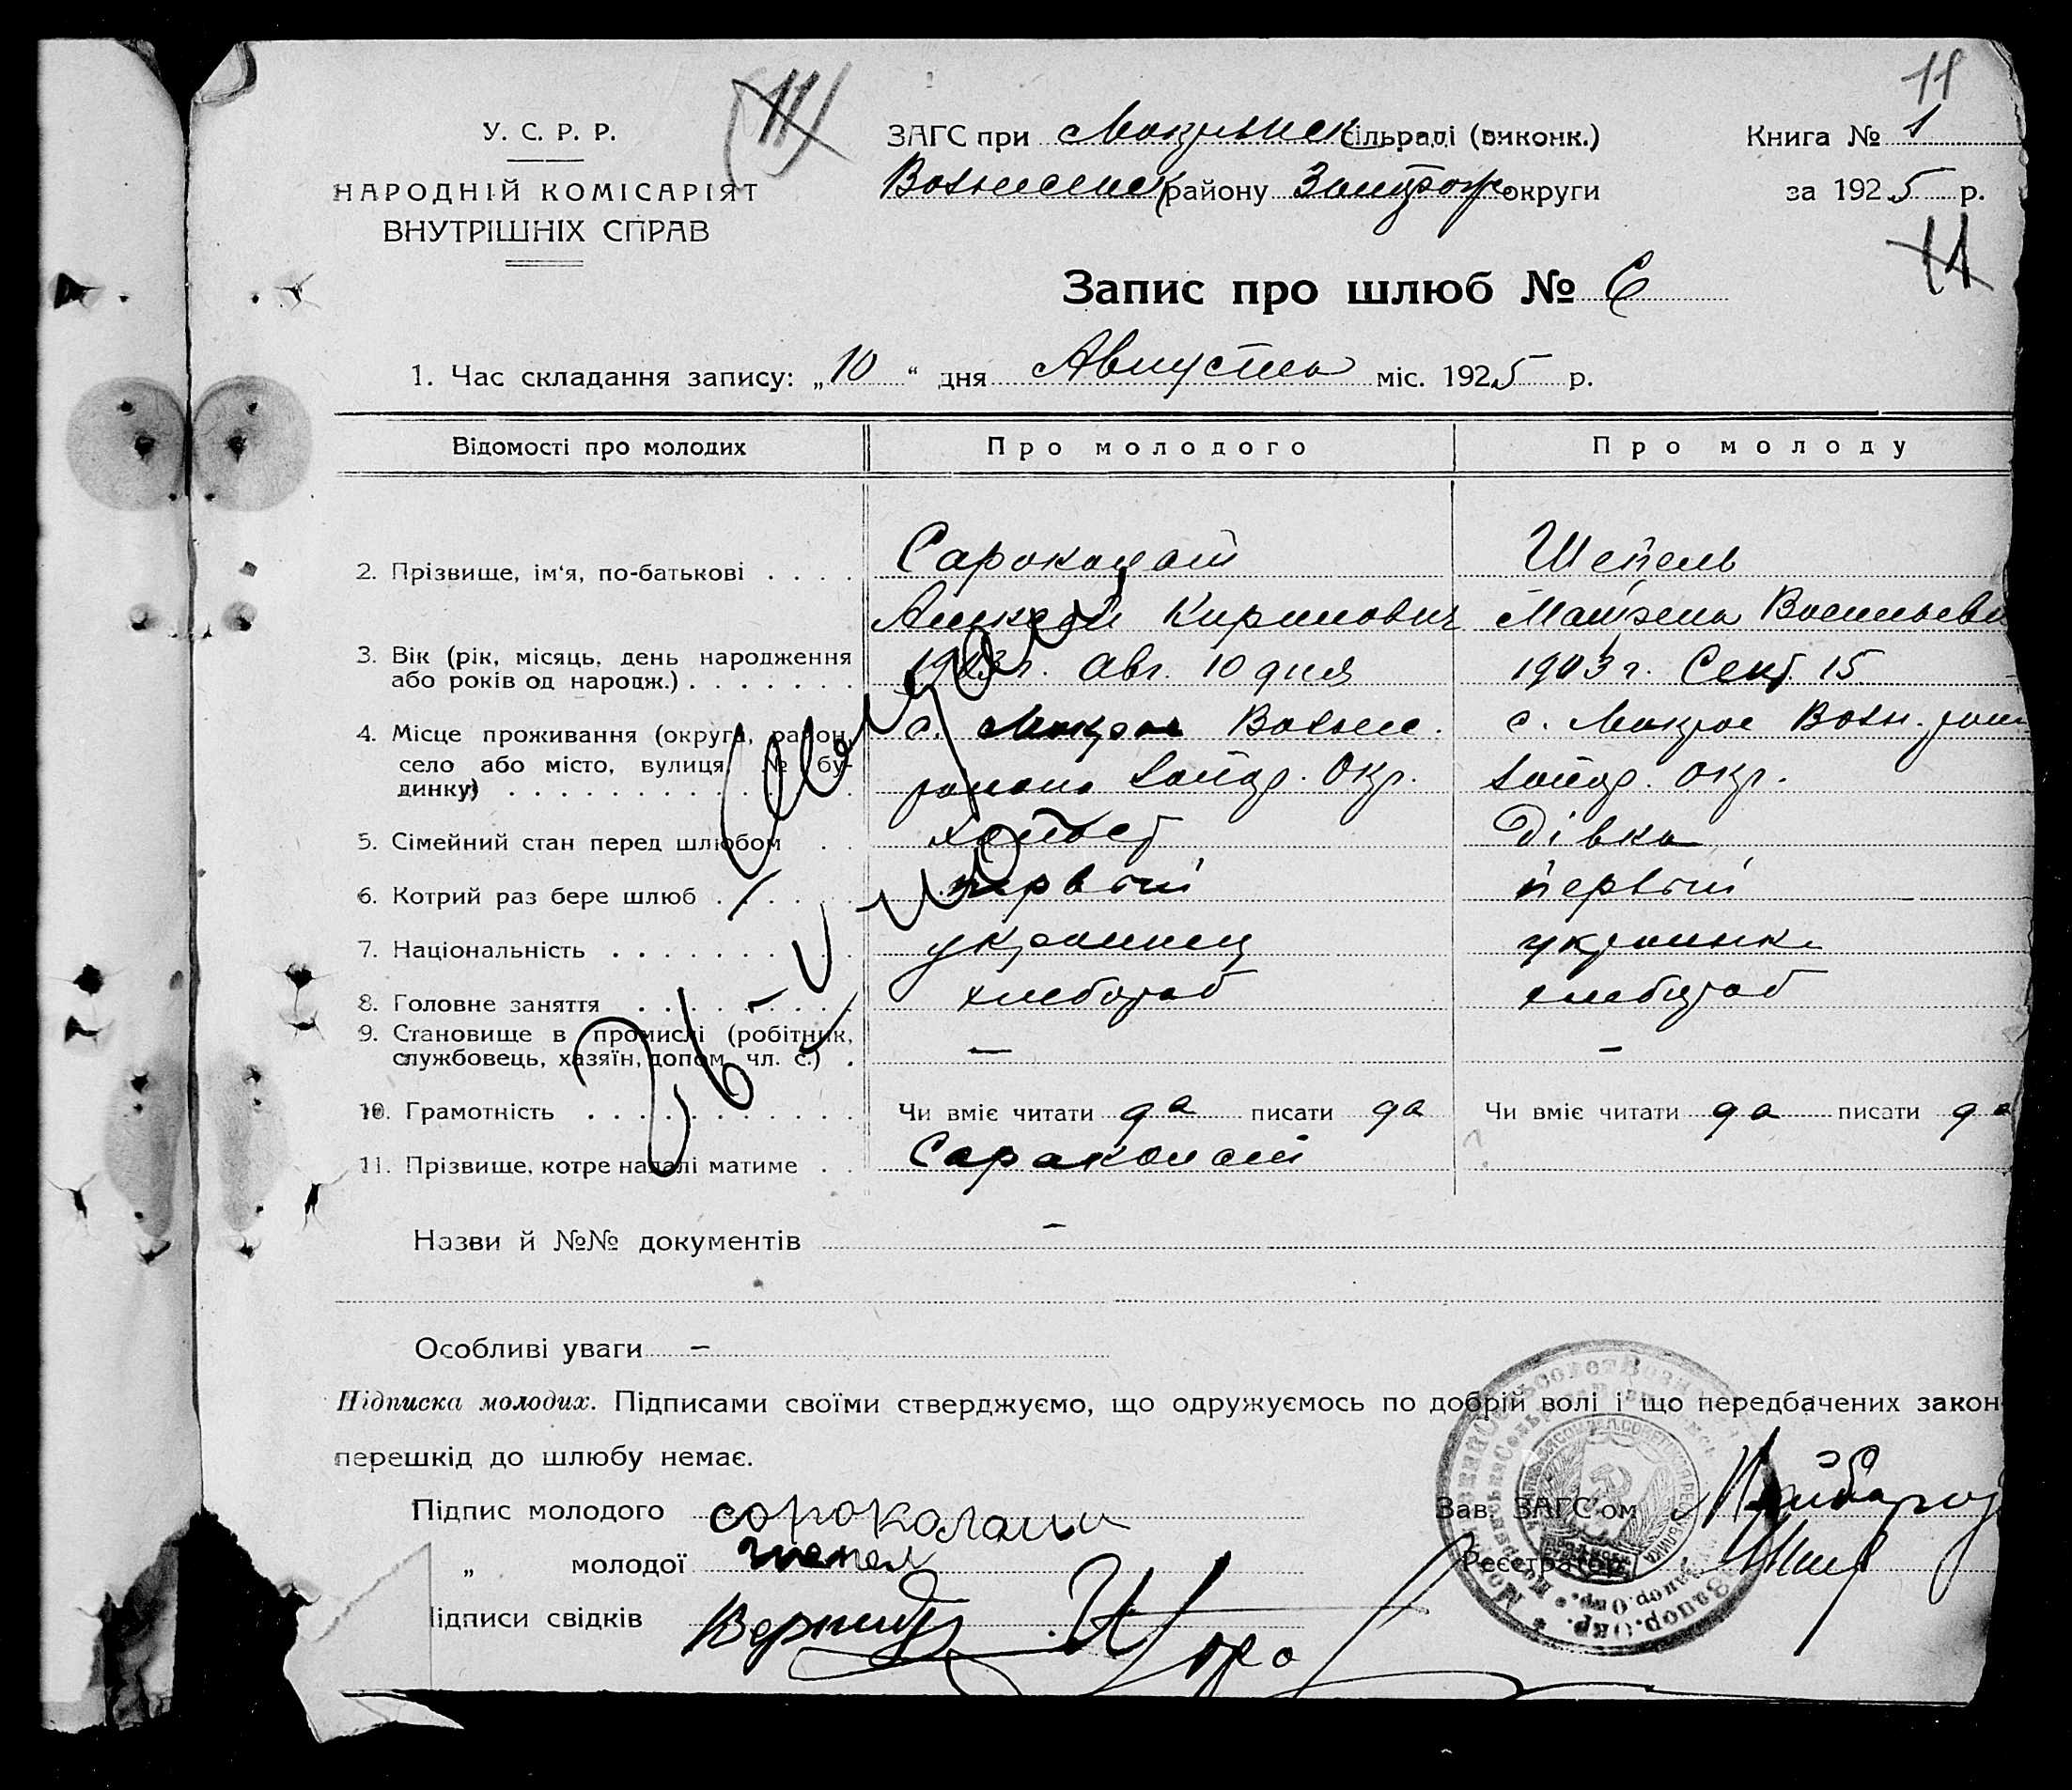 11
(11)
У. С. Р. Р.
НАРОДНІЙ КОМІСАРІЯТ
ВНУТРІШНІХ СПРАВ
ЗАГС при Мокрянск сільраді (виконк.)
Вознесенск району Запорож округи
Книга № 1
за 1925 р.
11
Запис про шлюб № 6
1. Час складання запису: „10“ дня Августа міс. 1925 р.
Відомості про молодих Про молодого Про молоду
2. Прізвище, ім'я, по-батькові . . . . Сарокопат Шепель
Алексей Кирилович Васильевн
3. Вік (рік, місяць, день народження
або років од народж.) . . . . . . . 1903 г. Авг. 10 дня 1903 г. Сент. 15
4. Місце проживання (округа, район,
село або місто, вулиця, № бу-
динку) с. Мокрое Вознес. с. Мокрое Возн. рай
района Запор. Окр. Запор. Окр.
5. Сімейний стан перед шлюбом . . холост дівка
6. Котрий раз бере шлюб . . . . . первый первый
7. Національність украинец украинк
8. Головне заняття хлебороб хлебороб
9. Становище в промислі (робітник,
службовець, хазяїн, допом. чл. с.) . — –
10. Грамотність Чи вміє читати да писати да Чи вміє читати да писати да
11. Прізвище, котре надалі матиме . . Саракопат
Назви й №№ документів –
Особливі уваги –
Підписка молодих. Підписами своїми стверджуємо, що одружуємось по добрій волі і що передбачених закон
перешкід до шлюбу немає.
Підпис молодого сорокапат
Зав. ЗАГС-ом
„ молодої шепел
Реєстратор
Підписи свідків